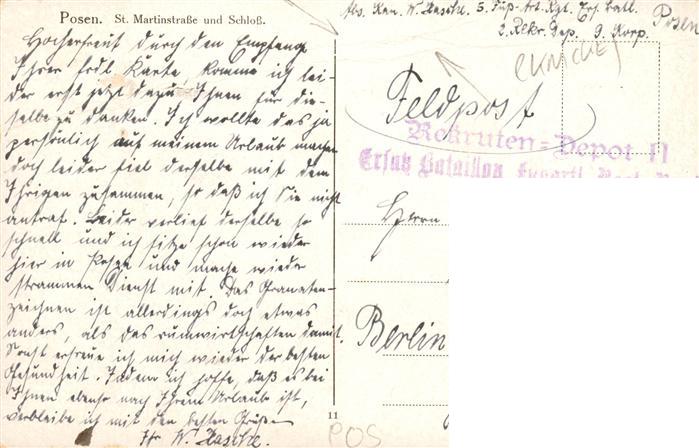 Posen. St. Martinstraße und Schloß.
Hocherfreut durch den Empfang
Ihrer frdl. Karte, komme ich lei-
der erst jetzt dazu Ihnen für die-
selbe zu danken. Ich wollte das ja
persönlich auf meinem Urlaub machen
doch leider fiel derselbe mit dem
Ihrigen zusammen, so daß ich Sie nicht
antraf. Leider verlief derselbe so
schnell und ich sitze schon wieder
hier in Posen und mache wieder
strammen Dienst mit. Das Granaten-
zeichnen ist allerdings doch etwas
anders, als das rumwirtschaften damit.
Sonst erfreue ich mich wieder der besten
Gesundheit. Indem ich hoffe, daß es bei
Ihnen ebenso nach Ihrem Urlaub ist,
verbleibe ich mit den besten Grüßen
Ihr W.
Abs. Kan. W. 5. Fuß-Art. Rgt. Ers. Batl.
2. Rekr. Dep. 9. Korp. Posen
Feldpost
Rekruten-Depot II
Ersatz Bataillon
Herrn
Berlin
11
POS